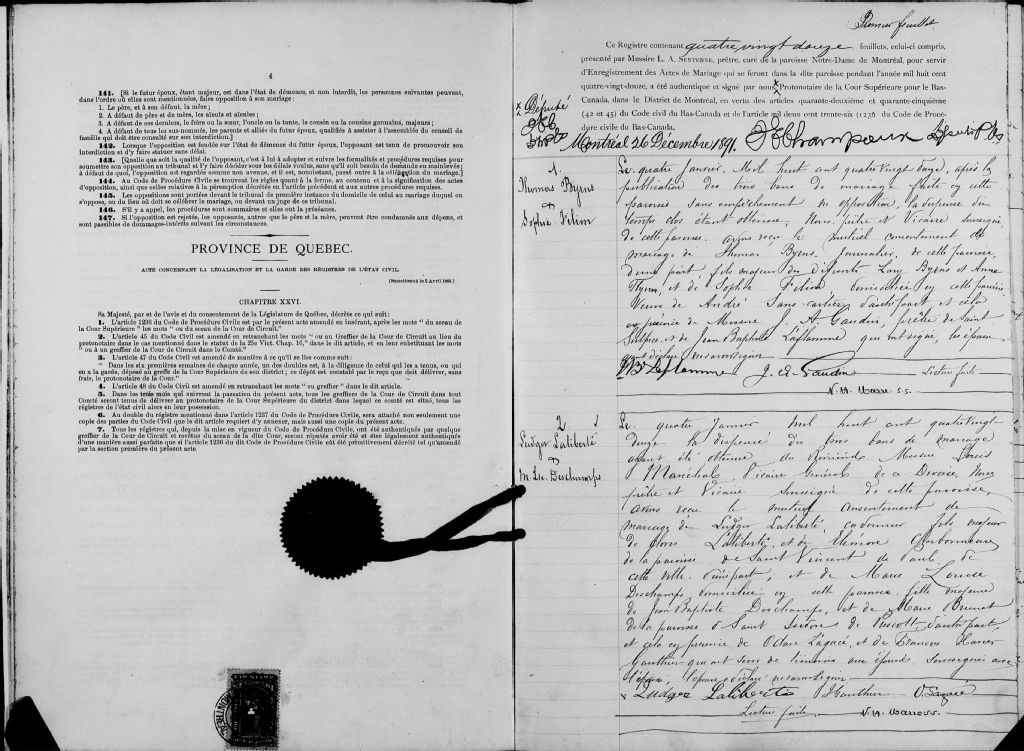 4
141. [Si le futur époux, étant majeur, est dans l'état de démence, et non interdit, les personnes suivantes peuvent,
dans l'ordre où elles sont mentionnées, faire opposition à son mariage :
1. Le père, et à son défaut, la mère ;
2. A défaut de père et de mère, les aïeuls et aïeules ;
3. A défaut de ces derniers, le frère ou la sœur, l'oncle ou la tante, le cousin ou la cousine germains, majeurs ;
4. A défaut de tous les sus-nommés, les parents et alliés du futur époux, qualifiés à assister à l'assemblée du conseil de
famille qui doit être consulté sur son interdiction.]
142. Lorsque l'opposition est fondée sur l'état de démence du futur époux, l'opposant est tenu de promouvoir son
interdiction et d'y faire statuer sans délai.
143. [Quelle que soit la qualité de l'opposant, c'est à lui à adopter et suivre les formalités et procédures requises pour
soumettre son opposition au tribunal et s'y faire décider sous les délais voulus, sans qu'il soit besoin de demande en mainlevée ;
à défaut de quoi, l'opposition est regardée comme non avenue, et il est, nonobstant, passé outre à la célébration du mariage.]
144. Au Code de Procédure Civile se trouvent les règles quant à la forme, au contenu et à la signification des actes
d'opposition, ainsi que celles relatives à la péremption décrétées en l'article précédent et aux autres procédures requises.
145. Les oppositions sont portées devant le tribunal de première instance du domicile de celui au mariage duquel on
s'oppose, ou du lieu où doit se célébrer le mariage, ou devant un juge de ce tribunal.
146. S'il y a appel, les procédures sont sommaires et elles ont la préséance.
147. Si l'opposition est rejetée, les opposants, autres que le père et la mère, peuvent être condamnés aux dépens, et
sont passibles de dommages-intérêts suivant les circonstances.
PROVINCE DE QUEBEC.
ACTE CONCERNANT LA LÉGALISATION ET LA GARDE DES RÉGISTRES DE L'ÉTAT CIVIL.
[Sanctionné le 5 Avril 1869.]
CHAPITRE XXVI.
Sa Majesté, par et de l'avis et du consentement de la Législature de Québec, décrète ce qui suit :
1. L'article 1236 du Code de Procédure Civile est par le présent acte amendé en insérant, après les mots " du sceau de
la Cour Supérieure " les mots " ou du sceau de la Cour de Circuit."
2. L'article 45 du Code Civil est amendé en retranchant les mots " ou au Greffier de la Cour de Circuit au lieu du
protonotaire dans le cas mentionné dans le statut de la 25e Vict. Chap. 16," dans le dit article, et en leur substituant les mots
" ou à un greffier de la Cour de Circuit dans le Comté."
3. L'article 47 du Code Civil est amendé de manière à ce qu'il se lise comme suit :
" Dans les six premières semaines de chaque année, un des doubles est, à la diligence de celui qui les a tenus, ou qui
en a la garde, déposé au greffe de la Cour Supérieure de son district ; ce dépôt est constaté par le reçu que doit délivrer, sans
frais, le protonotaire de la Cour."
4. L'article 48 du Code Civil est amendé en retranchant les mots " ou greffier " dans le dit article.
5. Dans les trois mois qui suivront la passation du présent acte, tous les greffiers de la Cour de Circuit dans tout
Comté seront tenus de délivrer au protonotaire de la Cour Supérieure du district dans lequel ce comté est situé, tous les
régistres de l'état civil alors en leur possession.
6. Au double du régistre mentionné dans l'article 1237 du Code de Procédure Civile, sera attaché non seulement une
copie des parties du Code Civil que le dit article requiert d'y annexer, mais aussi une copie du présent acte.
7. Tous les régistres qui, depuis la mise en vigueur du Code de Procédure Civile, ont été authentiqués par quelque
greffier de la Cour de Circuit et revêtus du sceau de la dite Cour, seront réputés avoir été et être légalement authentiqués
d'une manière aussi parfaite que si l'article 1236 du dit Code de Procédure Civile eût été primitivement décrété tel qu'amendé
par la section première du présent acte.
Premier feuillet
Ce Registre contenant quatre vingt douze feuillets, celui-ci compris,
présenté par Messire L. A. Sentenne, prêtre, curé de la paroisse Notre-Dame de Montréal, pour servir
d'Enregistrement des Actes de Mariage qui se feront dans la dite paroisse pendant l'année mil huit cent
quatre-vingt-douze, a été authentiqué et signé par nous Protonotaire de la Cour Supérieure pour le Bas-
Canada, dans le District de Montréal, en vertu des articles quarante-deuxième et quarante-cinquième
(42 et 45) du Code civil du Bas-Canada et de l'article mil deux cent trente-six (1236) du Code de Procé-
dure civile du Bas-Canada.
x Député
Montréal 26 Décembre 1891.
1.
Thomas Byrns
&
Sophie Felim
Le quatre janvier, Mil huit cent quatre vingt douze, après la
publication des trois bans de mariage faite en cette
paroisse sans empêchement ni opposition, la dispense du
temps clos étant obtenue, Nous, prêtre et Vicaire soussigné
de cette paroisse, avons reçu le mutuel consentement de
mariage de Thomas Byrns, journalier, de cette paroisse,
d'une part, fils majeur de défunts Byrns et Anne
et de Sophie Felim domiciliée en cette paroisse
Veuve de André Sans-cartier d'autre part, et cela
en présence de Messire J. A. Gaudin, prêtre de Saint
Sulpice, et de Jean Baptiste Laflamme qui ont signé, les époux
ont déclaré ne savoir signer
J. Bte Laflamme J. A. Gaudin Lecture faite
s.s.
2.
Ludger Laliberté
&
M. Lse. Deschamps
Le quatre janvier mil huit cent quatre vingt-
douze la dispense des trois bans de mariage
ayant été obtenue du Révérend Messire Louis
Maréchal, Vicaire Général de ce Diocèse, Nous
prêtre et Vicaire soussigné de cette paroisse,
avons reçu le mutuel consentement de
mariage de Ludger Laliberté, cordonnier fils majeur
de Laliberté, et de Eléonore Charbonneau
de la paroisse de Saint Vincent de Paul, de
cette ville, d'une part ; et de Marie Louise
Deschamps domiciliée en cette paroisse, fille majeure
de Jean Baptiste Deschamps, et de Marie Brunet
de la paroisse Saint Isidore de Prescott, d'autre part,
et cela en présence de Odore Lagacé, et de François Xavier
Gauthier qui ont servi de témoins aux époux, soussignés avec
l'époux, l'épouse a déclaré ne savoir signer
Ludger Laliberté Gauthier O Lagacé
Lecture faite, s.s.